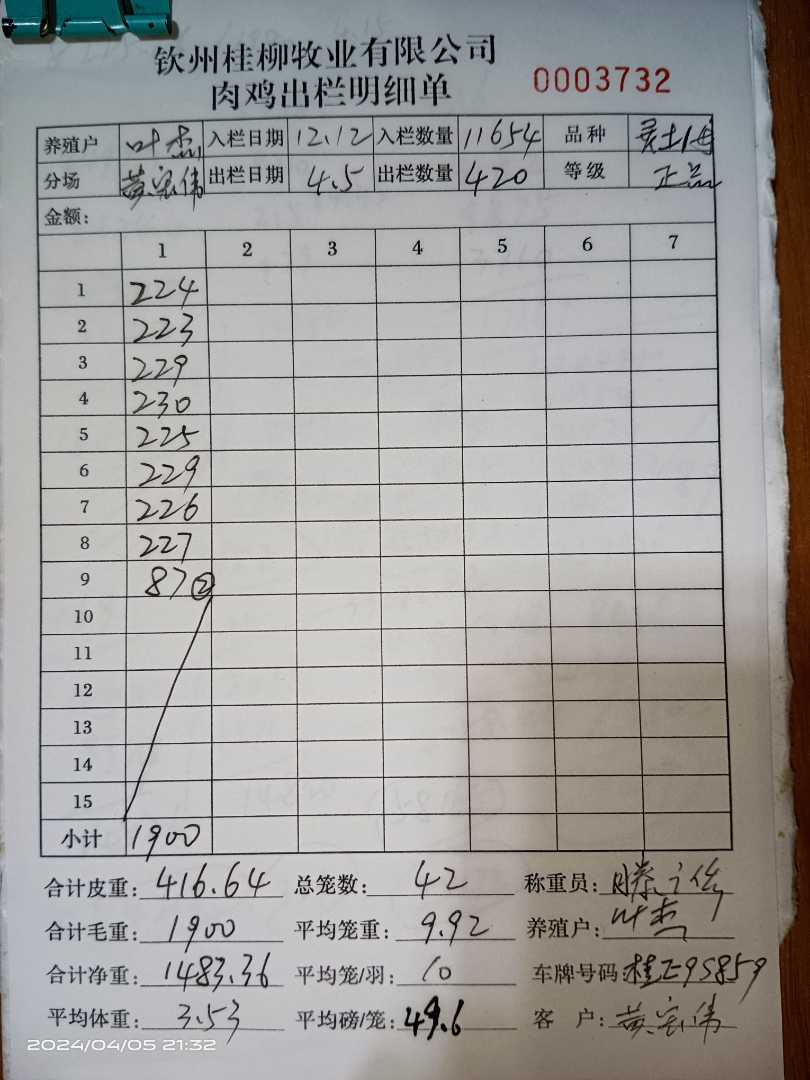 钦州桂柳牧业有限公司
肉鸡出栏明细单 0003732
养殖户 叶杰 入栏日期 12.12 入栏数量 11654 品种
分场 黄家伟 出栏日期 4.5 出栏数量 420 等级 正品
金额：
1 2 3 4 5 6 7
1 224
2 223
3 229
4 230
5 225
6 229
7 226
8 227
9 87 ②
10
11
12
13
14
15
小计 1900
合计皮重：416.64 总笼数：42 称重员：
合计毛重：1900 平均笼重：9.92 养殖户：叶杰
合计净重：1483.36 平均笼/羽：10 车牌号码：桂E95859
平均体重：3.53 平均磅/笼：49.6 客 户：黄家伟
2024/04/05 21:32